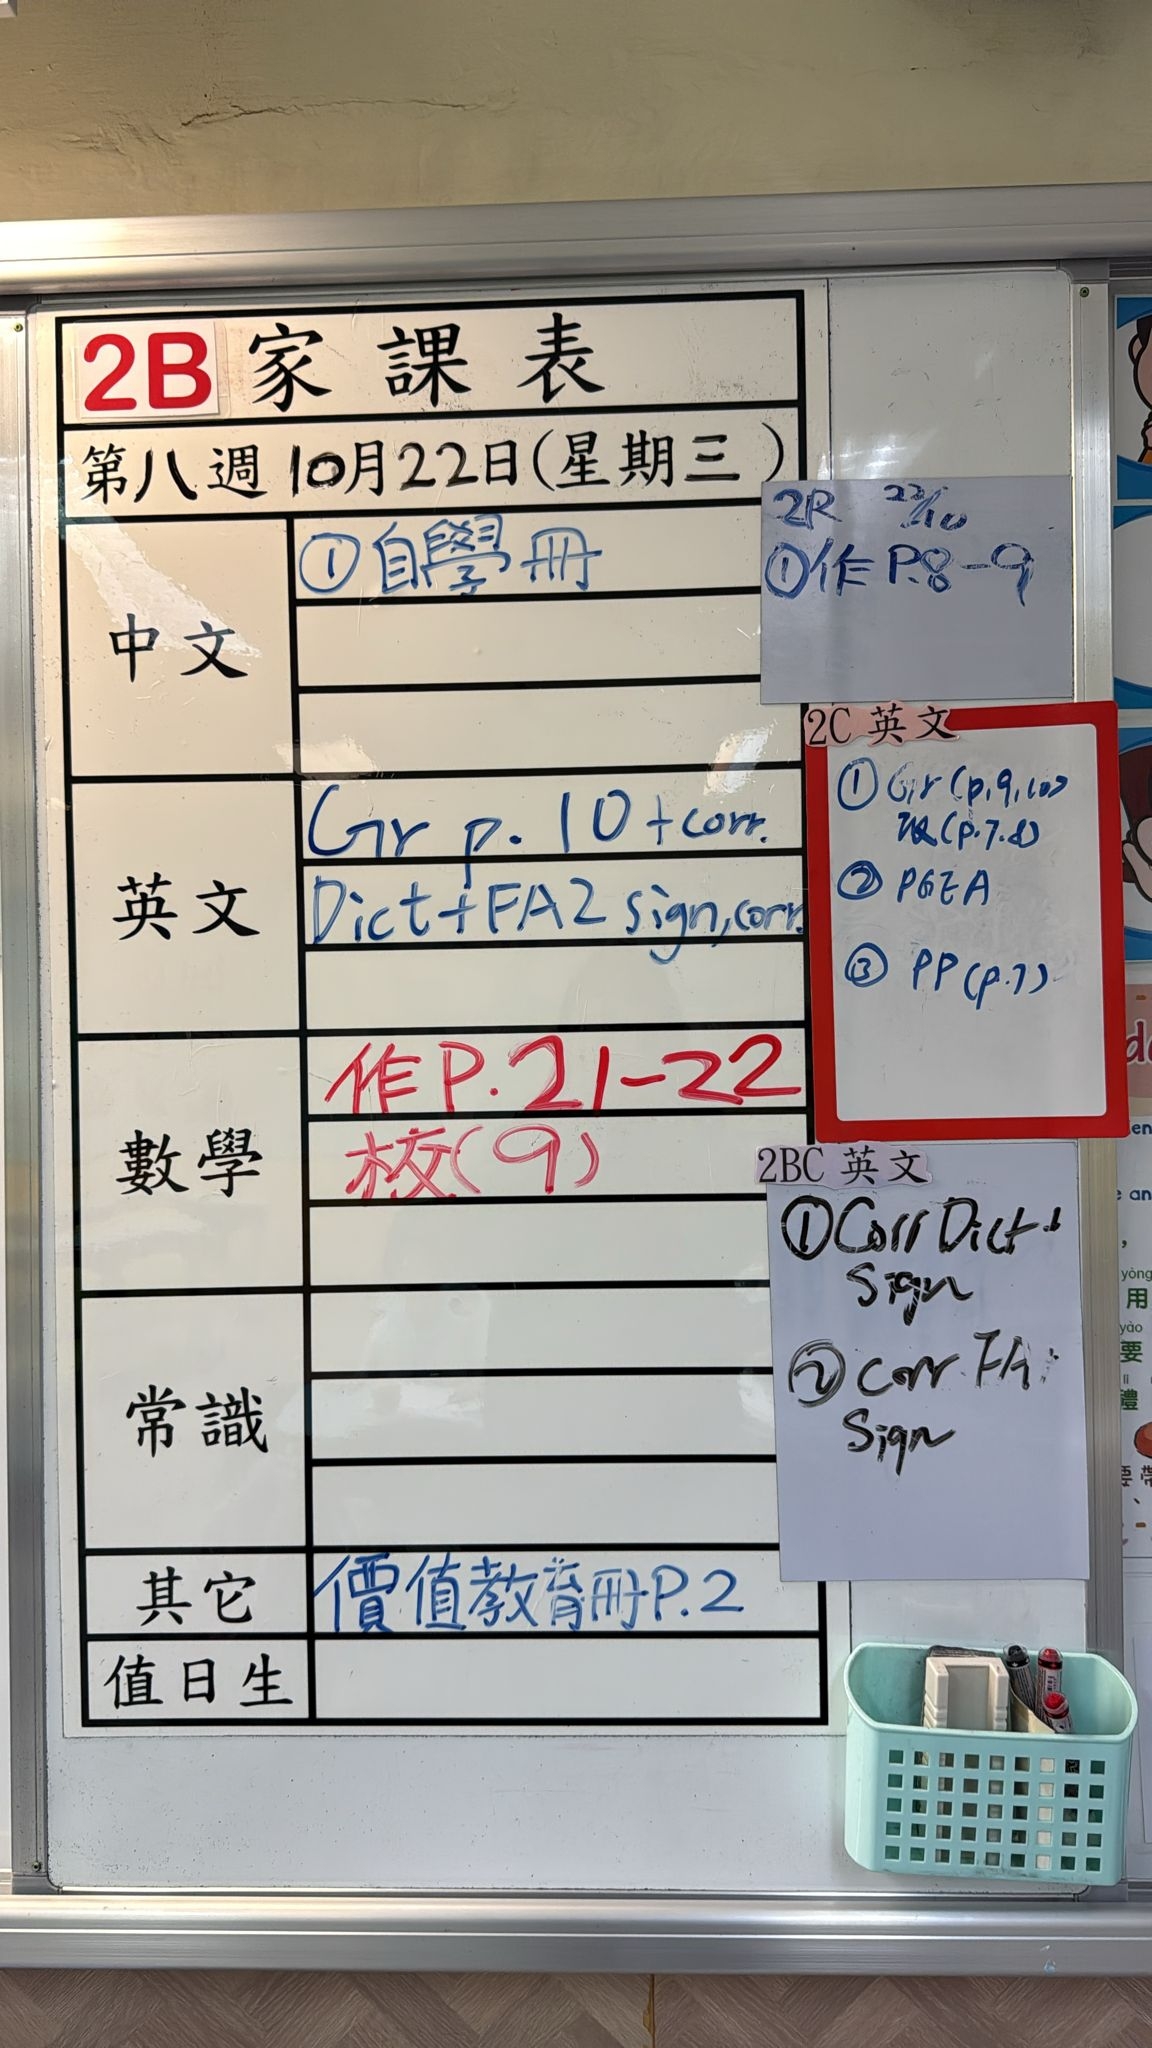 2B 家課表
第八週 10月22日(星期三)
中文
① 自學冊
英文
Gr p. 10 + corr.
Dict + FA2 sign, corr.
數學
作P. 21-22
校(9)
常識
其它
價值教育冊P.2
值日生
2R 22/10
① 作 P.8-9
2C 英文
① Gr (p.9,10)
(p.7.8)
② PGEA
③ PP (p.7)
2BC 英文
① Corr Dict +
Sign
② Corr FA
Sign
yòng
用
yào
要
lǐ
禮